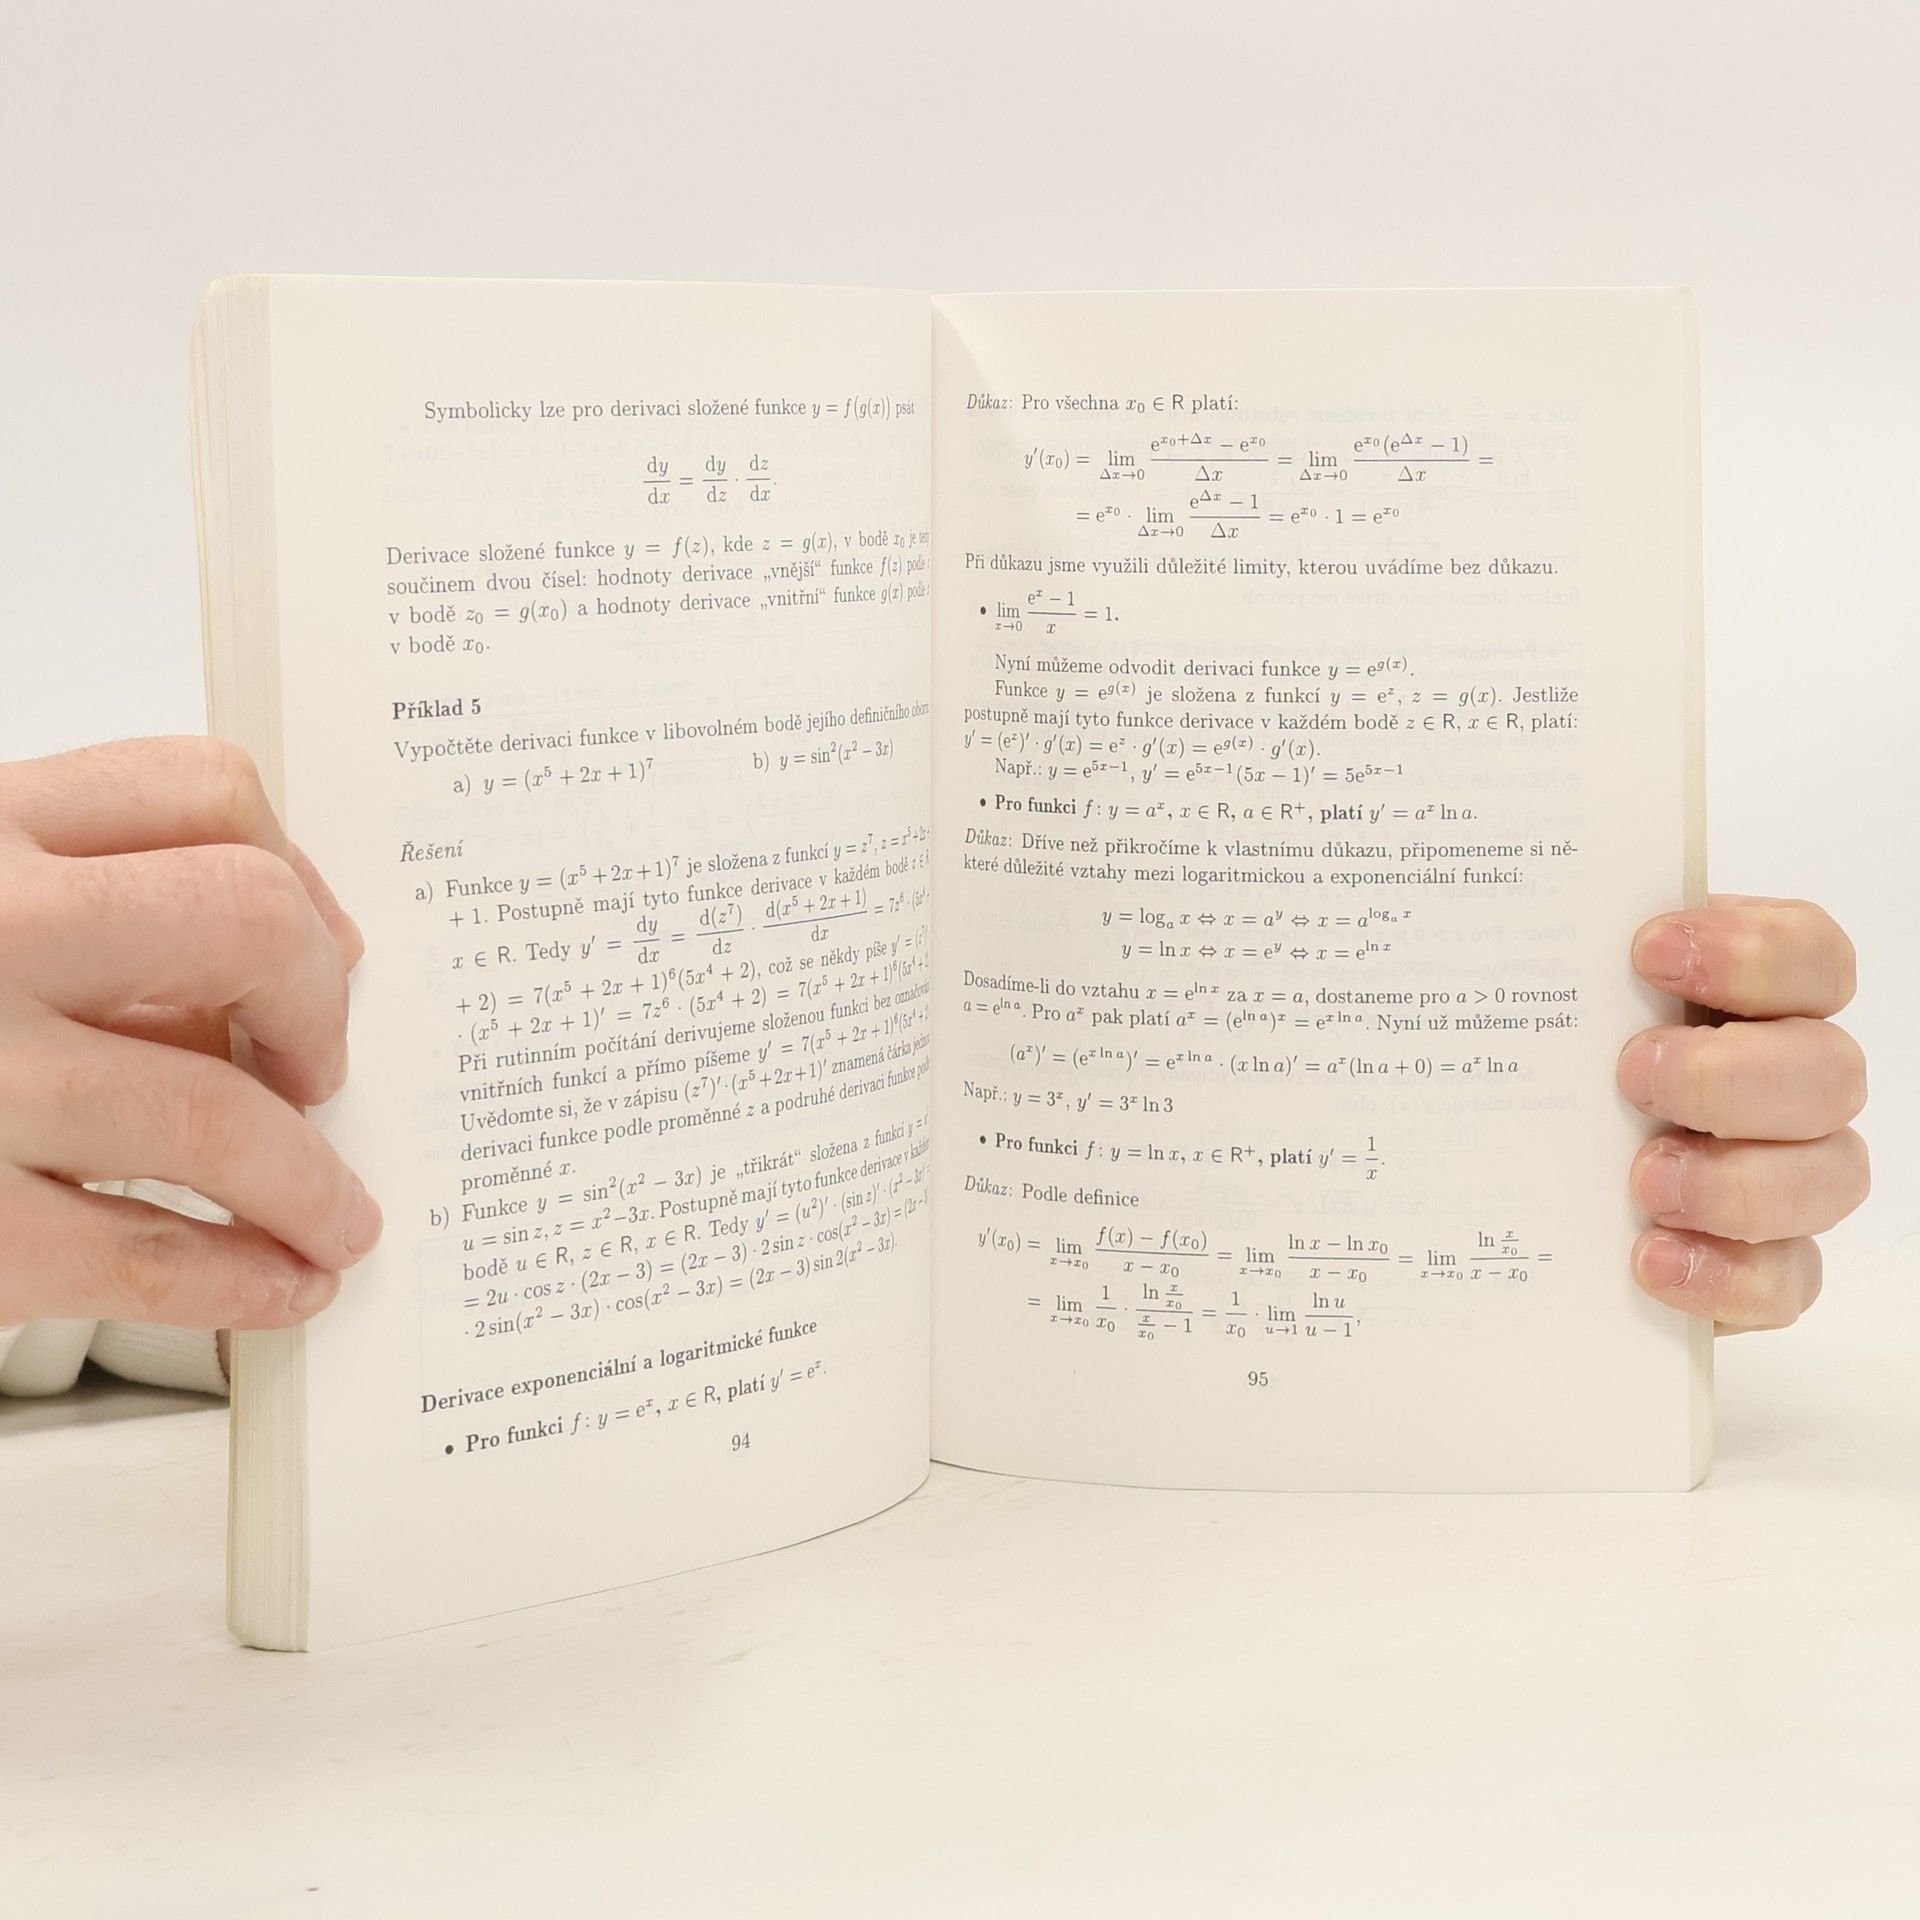 Symbolicky lze pro derivaci složené funkce y = f(g(x)) psát
dy/dx = dy/dz · dz/dx.
Derivace složené funkce y = f(z), kde z = g(x), v bodě x₀ je tedy
součinem dvou čísel: hodnoty derivace „vnější“ funkce f(z) podle z
v bodě z₀ = g(x₀) a hodnoty derivace „vnitřní“ funkce g(x) podle
v bodě x₀.
Příklad 5
Vypočtěte derivaci funkce v libovolném bodě jejího definičního oboru
a) y = (x⁵ + 2x + 1)⁷ b) y = sin²(x² − 3x)
Řešení
a) Funkce y = (x⁵ + 2x + 1)⁷ je složena z funkcí y = z⁷, z = x⁵ + 2x +
+ 1. Postupně mají tyto funkce derivace v každém bodě z ∈ R,
x ∈ R. Tedy y′ = dy/dx = d(z⁷)/dz · d(x⁵ + 2x + 1)/dx = 7z⁶ · (5x⁴ +
+ 2) = 7(x⁵ + 2x + 1)⁶(5x⁴ + 2), což se někdy píše y′ = (z⁷)′
· (x⁵ + 2x + 1)′ = 7z⁶ · (5x⁴ + 2) = 7(x⁵ + 2x + 1)⁶(5x⁴ + 2
Při rutinním počítání derivujeme složenou funkci bez označování
vnitřních funkcí a přímo píšeme y′ = 7(x⁵ + 2x + 1)⁶(5x⁴ + 2
Uvědomte si, že v zápisu (z⁷)′ · (x⁵ + 2x + 1)′ znamená čárka jednou
derivaci funkce podle proměnné z a podruhé derivaci funkce podle
proměnné x.
b) Funkce y = sin²(x² − 3x) je „třikrát“ složena z funkcí y = u²
u = sin z, z = x² − 3x. Postupně mají tyto funkce derivace v každém
bodě u ∈ R, z ∈ R, x ∈ R. Tedy y′ = (u²)′ · (sin z)′ · (x² − 3x)′ =
= 2u · cos z · (2x − 3) = (2x − 3) · 2 sin z · cos(x² − 3x) = (2x − 3)
· 2 sin(x² − 3x) · cos(x² − 3x) = (2x − 3) sin 2(x² − 3x).
Derivace exponenciální a logaritmické funkce
• Pro funkci f: y = eˣ, x ∈ R, platí y′ = eˣ.
94
Důkaz: Pro všechna x₀ ∈ R platí:
y′(x₀) = lim_{Δx→0} (e^{x₀+Δx} − e^{x₀})/Δx = lim_{Δx→0} e^{x₀}(e^{Δx} − 1)/Δx =
= e^{x₀} · lim_{Δx→0} (e^{Δx} − 1)/Δx = e^{x₀} · 1 = e^{x₀}
Při důkazu jsme využili důležité limity, kterou uvádíme bez důkazu.
• lim_{x→0} (eˣ − 1)/x = 1.
Nyní můžeme odvodit derivaci funkce y = e^{g(x)}.
Funkce y = e^{g(x)} je složena z funkcí y = e^z, z = g(x). Jestliže
postupně mají tyto funkce derivace v každém bodě z ∈ R, x ∈ R, platí:
y′ = (e^z)′ · g′(x) = e^z · g′(x) = e^{g(x)} · g′(x).
Např.: y = e^{5x−1}, y′ = e^{5x−1}(5x − 1)′ = 5e^{5x−1}
• Pro funkci f: y = aˣ, x ∈ R, a ∈ R⁺, platí y′ = aˣ ln a.
Důkaz: Dříve než přikročíme k vlastnímu důkazu, připomeneme si ně-
které důležité vztahy mezi logaritmickou a exponenciální funkcí:
y = logₐ x ⇔ x = a^y ⇔ x = a^{logₐ x}
y = ln x ⇔ x = e^y ⇔ x = e^{ln x}
Dosadíme-li do vztahu x = e^{ln x} za x = a, dostaneme pro a > 0 rovnost
a = e^{ln a}. Pro aˣ pak platí aˣ = (e^{ln a})ˣ = e^{x ln a}. Nyní už můžeme psát:
(aˣ)′ = (e^{x ln a})′ = e^{x ln a} · (x ln a)′ = aˣ(ln a + 0) = aˣ ln a
Např.: y = 3ˣ, y′ = 3ˣ ln 3
• Pro funkci f: y = ln x, x ∈ R⁺, platí y′ = 1/x.
Důkaz: Podle definice
y′(x₀) = lim_{x→x₀} (f(x) − f(x₀))/(x − x₀) = lim_{x→x₀} (ln x − ln x₀)/(x − x₀) = lim_{x→x₀} (ln x/x₀)/(x − x₀) =
= lim_{x→x₀} 1/x₀ · (ln x/x₀)/(x/x₀ − 1) = 1/x₀ · lim_{u→1} ln u/(u − 1),
95